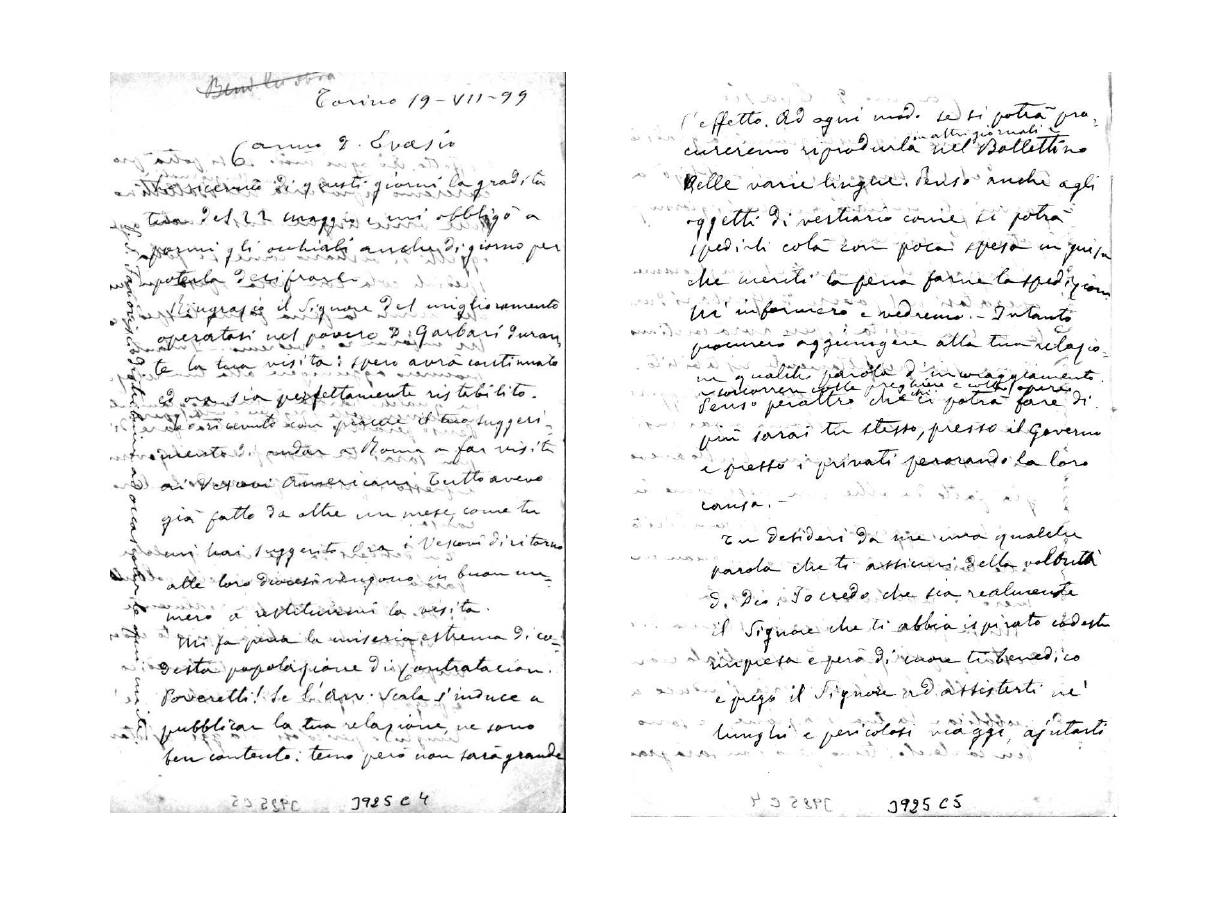 Torino 19-VII-99
Carmo D. Evasio
Ho ricevuto di questi giorni la gradita
tua del 22 maggio e mi obbligò a
pormi gli occhiali anche di giorno per
poterla decifrare.
Ringrazio il Signore del miglioramento
operatosi nel povero D. Garbari duran
te la tua visita: spero avrà continuato
ed ora sia perfettamente ristabilito.
con piacere il tuo suggeri-
mento di andar a Roma a far visita
ai Vescovi Americani. Tutto avevo
già fatto da oltre un mese, come tu
mi hai suggerito. Ora i Vescovi di ritorno
alle loro diocesi vengono in buon nu-
mero a restituirmi la visita.
Mi fa pena la miseria estrema di co-
desta popolazione di Contratacion.
Poveretti! Se l'Avv. Scala s'induce a
pubblicar la tua relazione, ne sono
ben contento: temo però non sarà grande
J925 C4
l'effetto. Ad ogni modo se si potrà pro-
cureremo riprodurla in altri giornali e nel Bollettino
delle varie lingue. Penso anche agli
oggetti di vestiario come si potrà
spedirli colà con poca spesa in guisa
che meriti la pena farne la spedizione
M'informerò e vedremo. - Intanto
procurerò aggiungere alla tua relazio-
ne qualche parola di incoraggiamento
a soccorrer colle preghiere e colle opere.
Penso peraltro che chi ci potrà fare di
più sarai tu stesso, presso il Governo
e presso i privati perorando la loro
causa. -
Tu desideri da me una qualche
parola che ti assicuri della volontà
di Dio. Io credo che sia realmente
il Signore che ti abbia ispirato codesta
impresa e però di cuore ti benedico
e prego il Signore ad assisterti ne'
lunghi e pericolosi viaggi, ajutarti
J925 C5